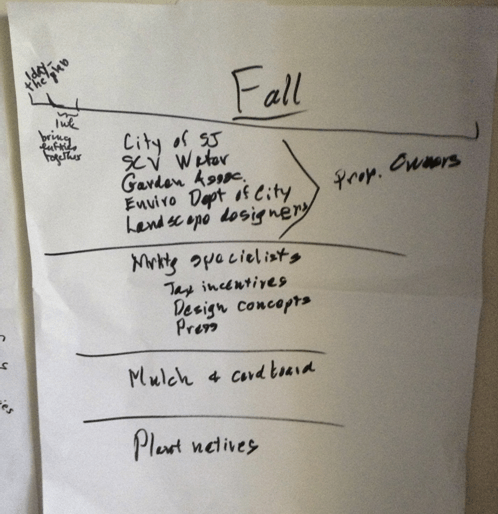 Fall
1 wk
bring
together
City of SJ
SCV Water
Garden Assoc.
Enviro Dept of City
Landscape designers
Prop. Owners
Mrktg specialists
Tax incentives
Design concepts
Press
Mulch & cardboard
Plant natives